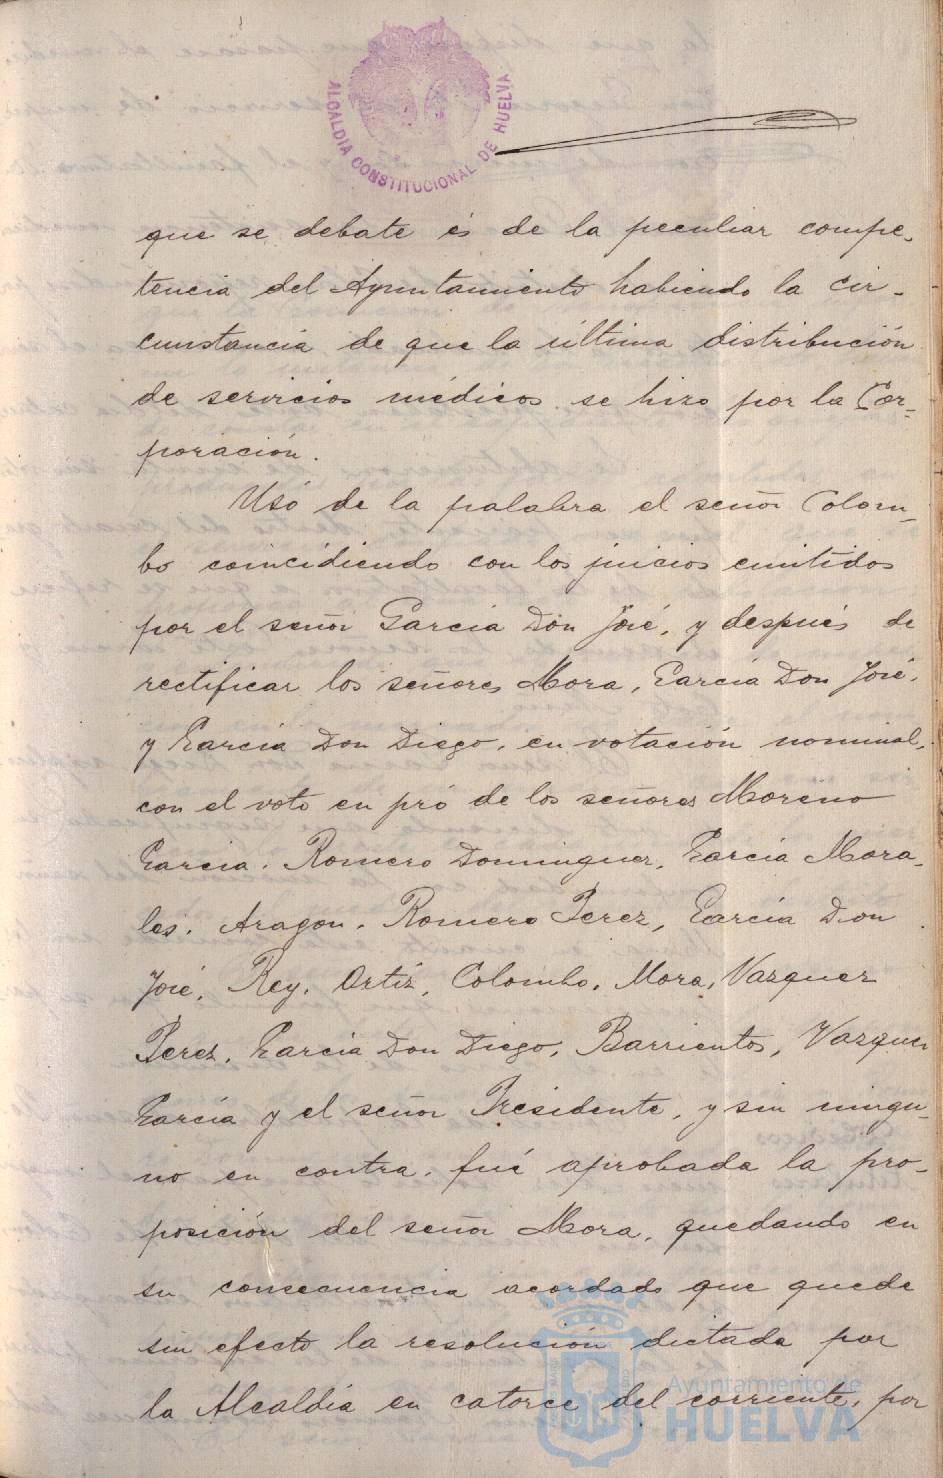 ALCALDIA CONSTITUCIONAL DE HUELVA
que se debate és de la peculiar compe-
tencia del Ayuntamiento habiendo la cir-
cunstancia de que la última distribución
de servicios médicos se hizo por la Cor-
poración.
Usó de la palabra el señor Colom-
bo coincidiendo con los juicios emitidos
por el señor García Don José, y después de
rectificar los señores Mora, García Don José,
y García Don Diego, en votación nominal,
con el voto en pró de los señores Moreno
García, Romero Dominguez, García Mora-
les, Aragon, Romero Perez, García Don
José, Rey, Ortíz, Colombo, Mora, Vazquez
Perez, García Don Diego, Barrientos, Vazquez
García y el señor Presidente, y sin ningu-
no en contra, fué aprobada la pro-
posición del señor Mora, quedando en
su consecuencia acordado que quede
sin efecto la resolución dictada por
la Alcaldía en catorce del corriente, por
Ayuntamiento de
HUELVA